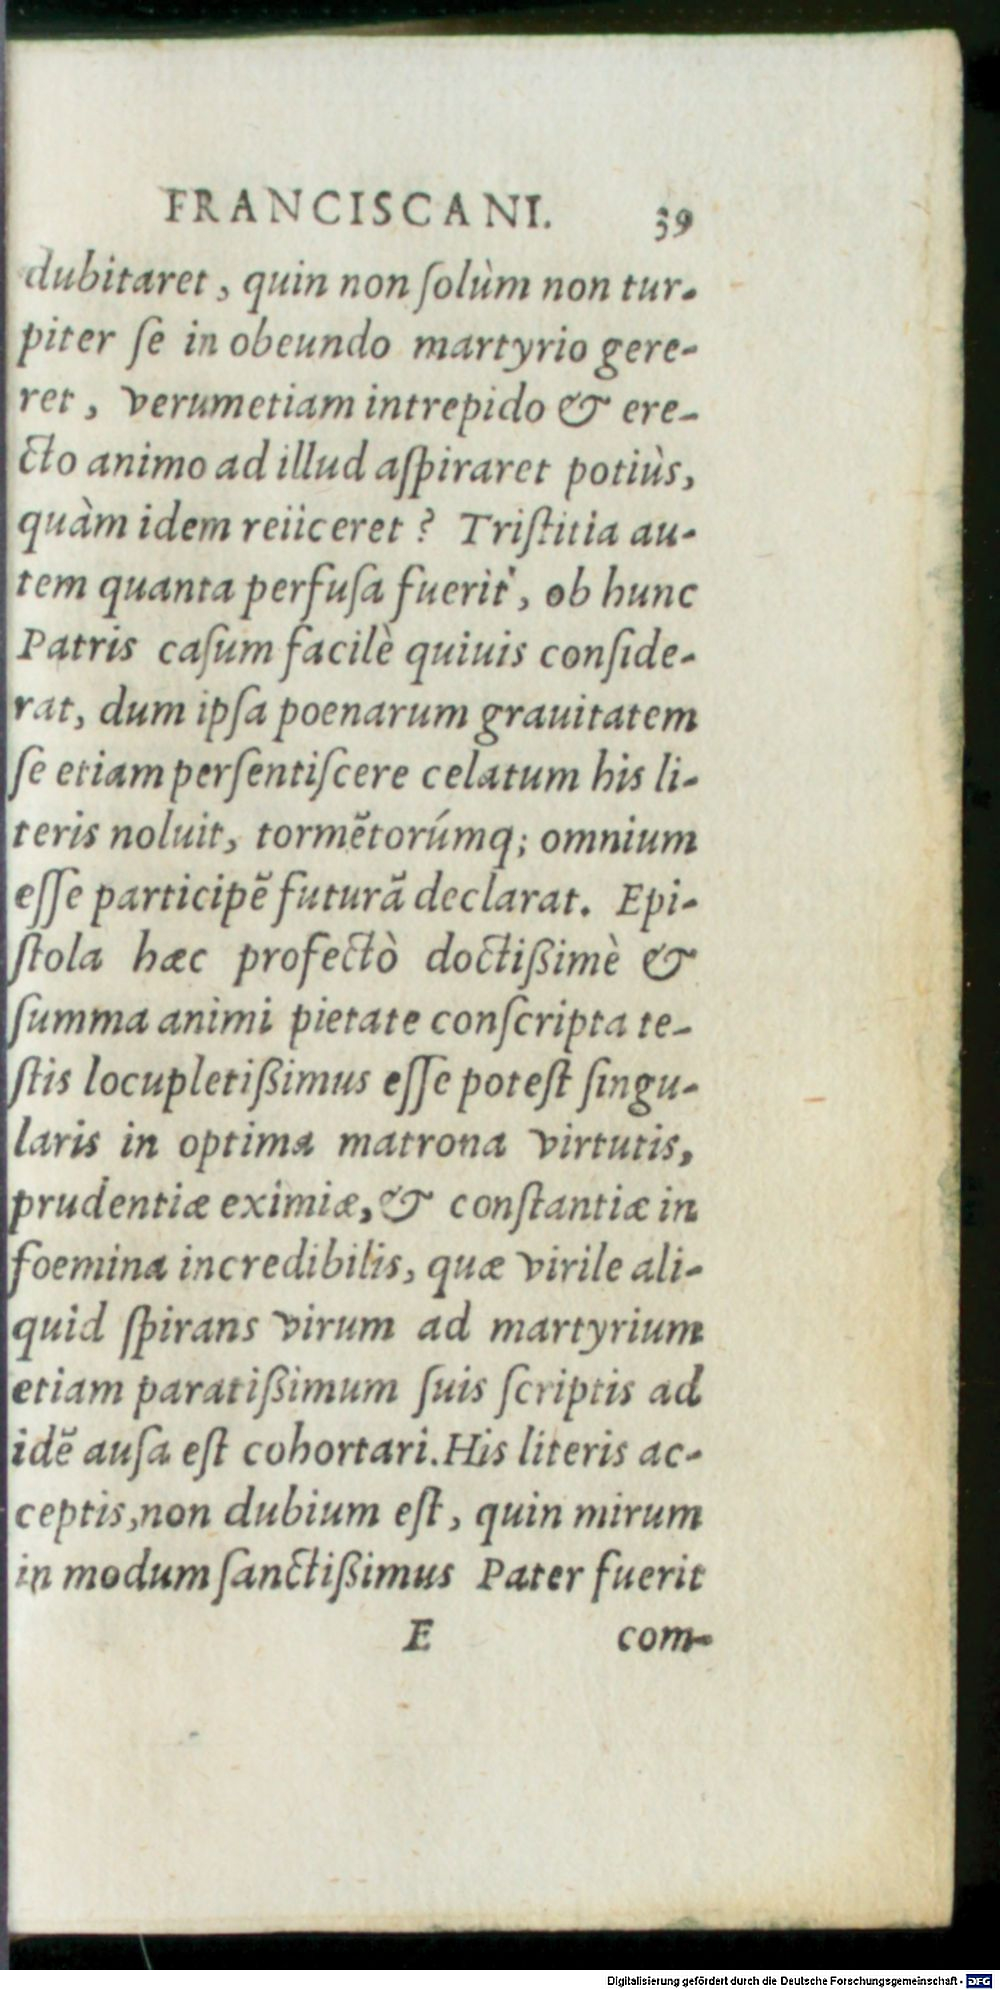 FRANCISCANI. 39
dubitaret, quin non ſolùm non tur-
piter ſe in obeundo martyrio gere-
ret, verumetiam intrepido & ere-
cto animo ad illud aſpiraret potiùs,
quàm idem reiiceret? Triſtitia au-
tem quanta perfuſa fuerit, ob hunc
Patris caſum facilè quiuis conſide-
rat, dum ipſa poenarum grauitatem
ſe etiam perſentiſcere celatum his li-
teris noluit, tormētorúmq; omnium
eſſe participē futurā declarat. Epi-
ſtola hæc profectò doctißimè &
ſumma animi pietate conſcripta te-
ſtis locupletißimus eſſe poteſt ſingu-
laris in optima matrona virtutis,
prudentiæ eximiæ, & conſtantiæ in
foemina incredibilis, quæ virile ali-
quid ſpirans virum ad martyrium
etiam paratißimum ſuis ſcriptis ad
idē auſa eſt cohortari. His literis ac-
ceptis, non dubium eſt, quin mirum
in modum ſanctißimus Pater fuerit
E com-
Digitalisierung gefördert durch die Deutsche Forschungsgemeinschaft - DFG